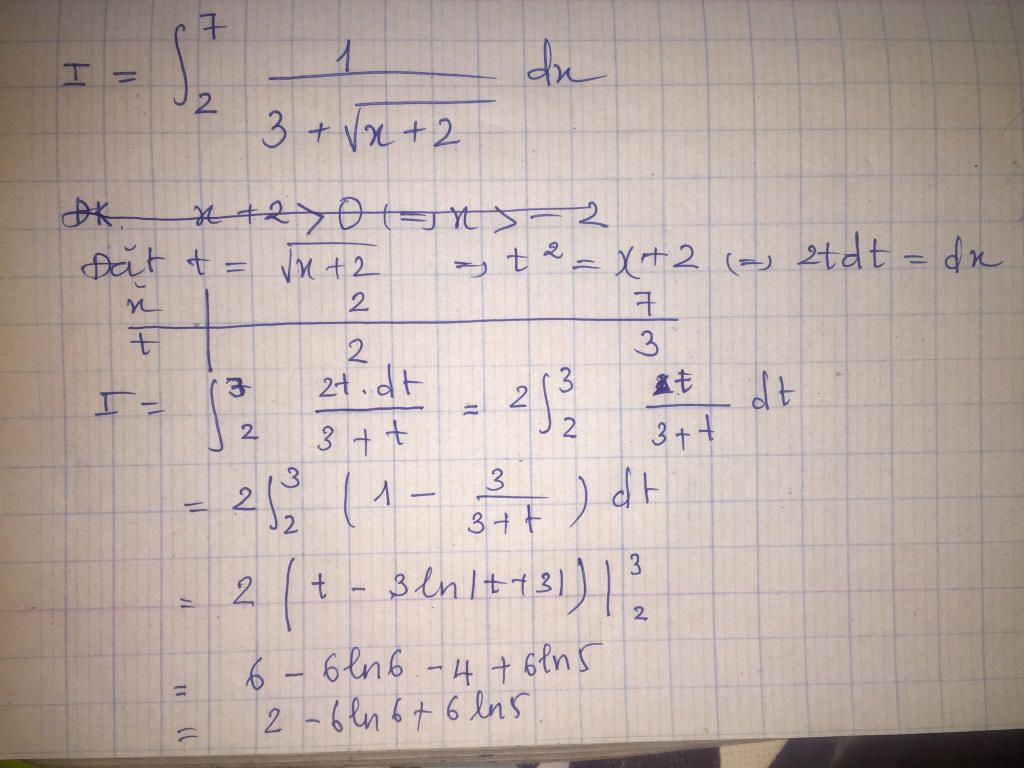 I = ∫₂⁷ 1/(3 + √(x + 2)) dx
ĐK. x + 2 > 0 (=) x > - 2
Đặt t = √(x + 2) =) t² = x + 2 (=) 2tdt = dx
x | 2 7
t | 2 3
I = ∫₂³ 2t . dt/(3 + t) = 2∫₂³ t/(3 + t) dt
= 2∫₂³ (1 - 3/(3 + t)) dt
= 2 (t - 3ln|t + 3|) |₂³
= 6 - 6ln6 - 4 + 6ln5
= 2 - 6ln6 + 6ln5